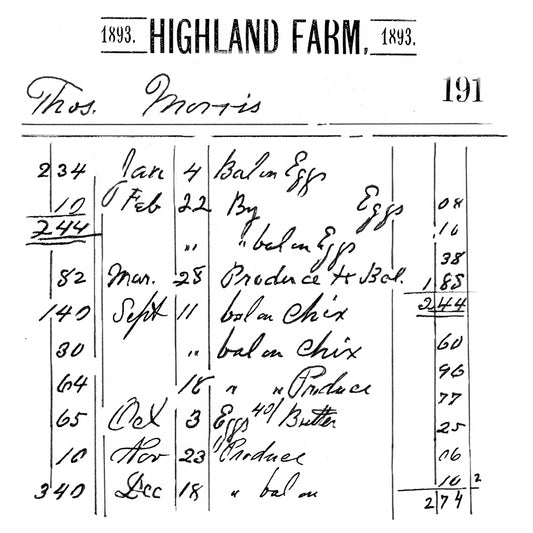 1893. HIGHLAND FARM, 1893.
Thos. Morris 191
2 34 Jan 4 Bal on Eggs
10 Feb 22 By Eggs 08
2 44 " " bal on Eggs 10
38
82 Mar. 28 Produce to Bal. 1 88
1 40 Sept 11 bal on Chix 2 44
30 " bal on Chix 60
64 18 " " Produce 96
77
65 Oct 3 Eggs 40/ Butter 25
10 Nov 23 " Produce 06
3 40 Dec 18 " bal on 10 2
2 74